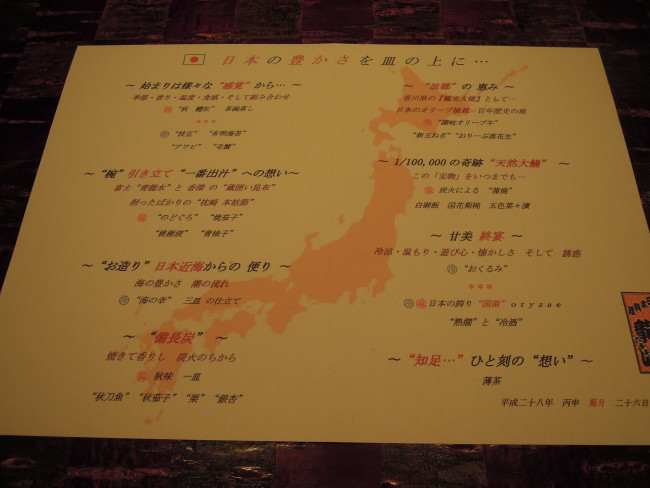 日本の豊かさを皿の上に…
～ 始まりは様々な “感覚” から… ～
季節・香り・温度・食感・そして組み合わせ
“秋 鱧松” 茶碗蒸し
***
“枝豆” “有明海苔”
“アワビ” “毛蟹”
～ “椀” 引き立て “一番出汁” への想い～
富士 “青龍水” と 香深 の “蔵囲い昆布”
削ったばかりの “枕崎 本枯節”
“のどぐろ” “焼茄子”
“桃樹液” “青柚子”
～ “お造り” 日本近海からの 便り ～
海の豊かさ 潮の流れ
“海の幸” 三皿 の仕立て
～ “備長炭” ～
焼きて香りし 炭火のちから
秋味 一皿
“秋刀魚” “秋茄子” “栗” “銀杏”
～ “故郷” の 恵み ～
香川県の『観光大使』として…
日本のオリーブ城島―百年歴史の地
“讃岐オリーブ牛”
“新玉ねぎ” “おりーぶ落花生”
～ 1/100,000の奇跡 “天然大鰻” ～
この「宝物」をいつまでも…
炭火による “蒲焼”
白御飯 国花菊椀 五色菜々漬
～ 甘美 終宴 ～
冷涼・温もり・遊び心・懐かしさ そして 誘惑
“おくるみ”
***
日本の誇り “国菌” oryzae
“熱燗” と “冷酒”
～ “知足…” ひと刻の “想い” ～
薄茶
平成二十八年 丙申 菊月 二十六日